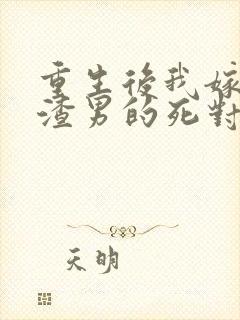 重生後我嫁
渣男的死對
天明